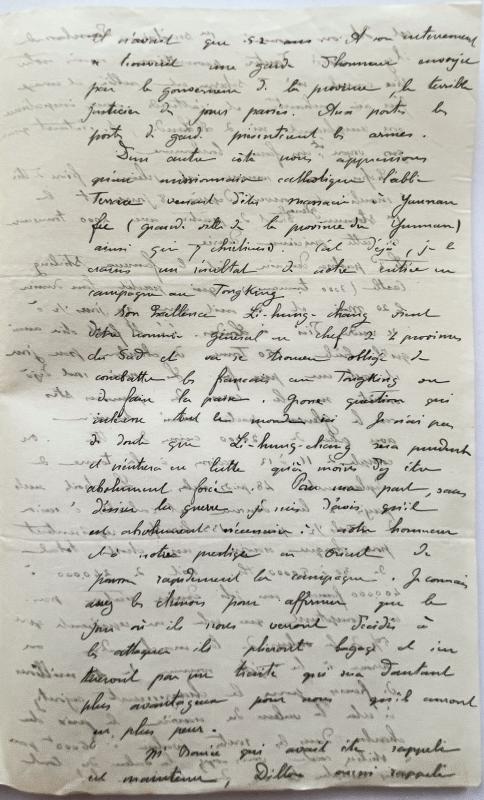 Il n'avait que 52 ans. A son enterrement
une garde d'honneur envoyée
par le gouverneur de la province, le terrible
justicier des jours passés. Aux portes les
postes de garde présentèrent les armes.
D'un autre côté nous apprenons
qu'un missionnaire catholique l'abbé
Terrasse venait d'être massacré à Yunnan
fu (grande ville de la province du Yunnan)
ainsi que 7 chrétiens. C'est déjà, je le
crains un résultat de notre entrée en
campagne au Tongking
Son Excellence Li-hung-chang vient
d'être nommé général en chef des provinces
du Sud et va se trouver obligé de
combattre les français au Tongking ou
de faire la paix. Grosse question qui
intéresse tout le monde ici. Je n'ai pas
de doute que Li-hung-chang sera prudent
et n'entrera en lutte qu'à moins d'y être
absolument forcé. Pour ma part, sans
désirer la guerre, je suis d'avis qu'il
est absolument nécessaire à notre honneur
et à notre prestige en Orient de
pousser rapidement la campagne. Je connais
assez les chinois pour affirmer que le
jour où ils nous verront décidés à
les attaquer ils plieront bagage et s'en
tireront par un traité qui sera d'autant
plus avantageux pour nous qu'ils auront
eu plus peur.
M. Bourée qui avait été rappelé
est maintenu, Dillon aussi rappelé